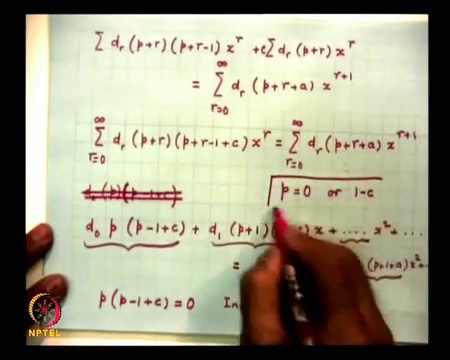 ∑ d_r (p+r)(p+r-1) x^r + c∑ d_r (p+r) x^r
= ∑_{r=0}^{∞} d_r (p+r+a) x^{r+1}
∑_{r=0}^{∞} d_r (p+r)(p+r-1+c) x^r = ∑_{r=0}^{∞} d_r (p+r+a) x^{r+1}
p=0 or 1-c
d_0 p (p-1+c) + d_1 (p+1)( x + .... x^2 + ...
= (p+1+a) x^2 + ..
p(p-1+c) = 0 In
NPTEL